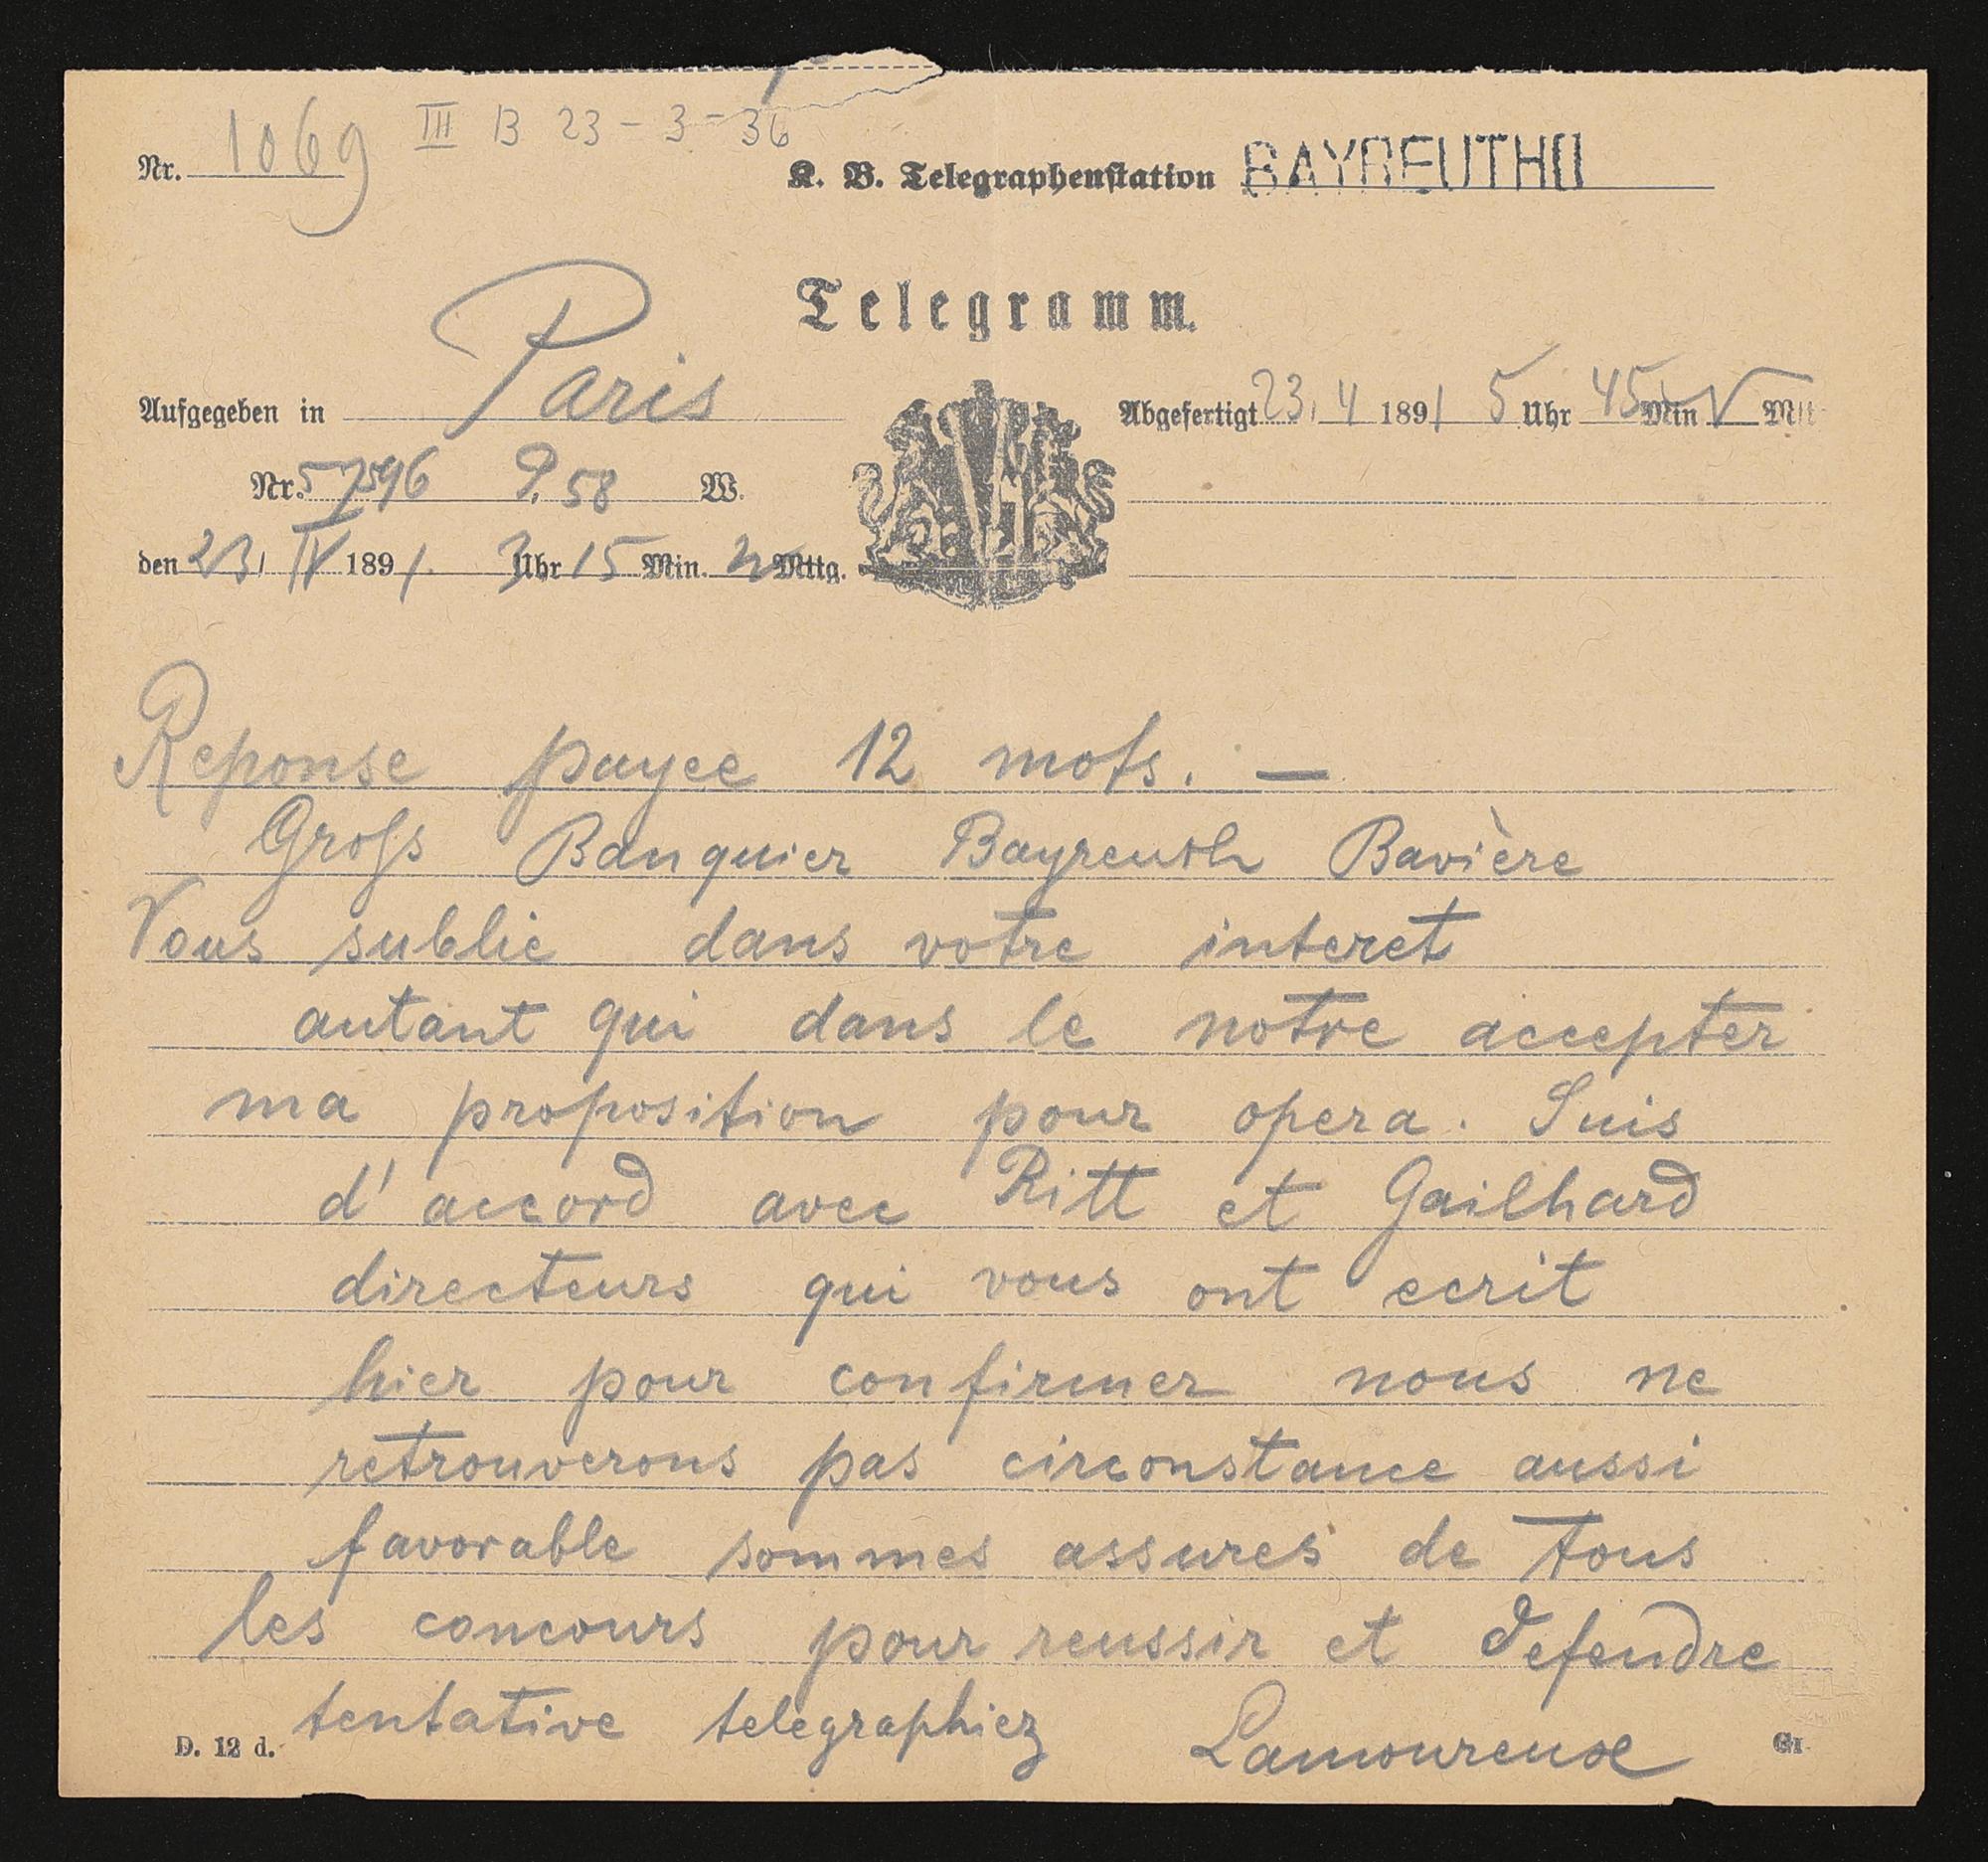 Nr. 1069 III B 23 - 3 - 36
K. B. Telegraphenstation BAYREUTH II
Telegramm.
Aufgegeben in Paris
Abgefertigt 23. 4 1891 5 Uhr 45 Min
Nr. 57596 P. 58 W.
den 23/ IV 1891. 3 Uhr 15 Min. Mttg.
Reponse payee 12 mots. —
Groſs Banquier Bayreuth Bavière
Vous sublie dans votre interet
autant qui dans le notre accepter
ma proposition pour opera. Suis
d'accord avec Ritt et Gailhard
directeurs qui vous ont ecrit
hier pour confirmer nous ne
retrouverons pas circonstance aussi
favorable sommes assures de tous
les concours pour reussir et defendre
tentative telegraphiez Lamoureux
D. 12 d.